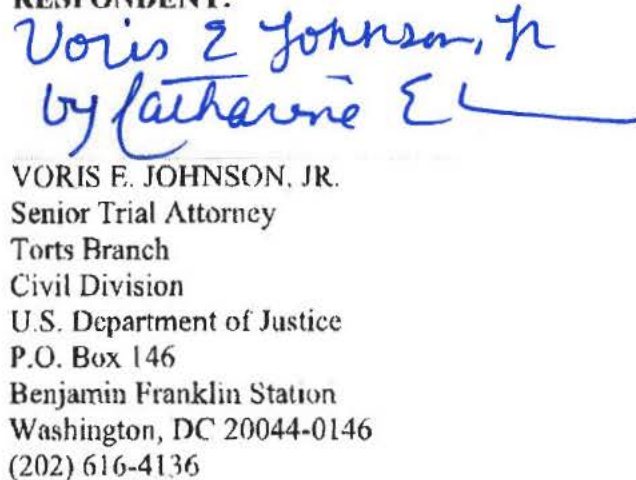 RESPONDENT:
Voris E Johnson, Jr
by Catharine E
VORIS E. JOHNSON, JR.
Senior Trial Attorney
Torts Branch
Civil Division
U.S. Department of Justice
P.O. Box 146
Benjamin Franklin Station
Washington, DC 20044-0146
(202) 616-4136